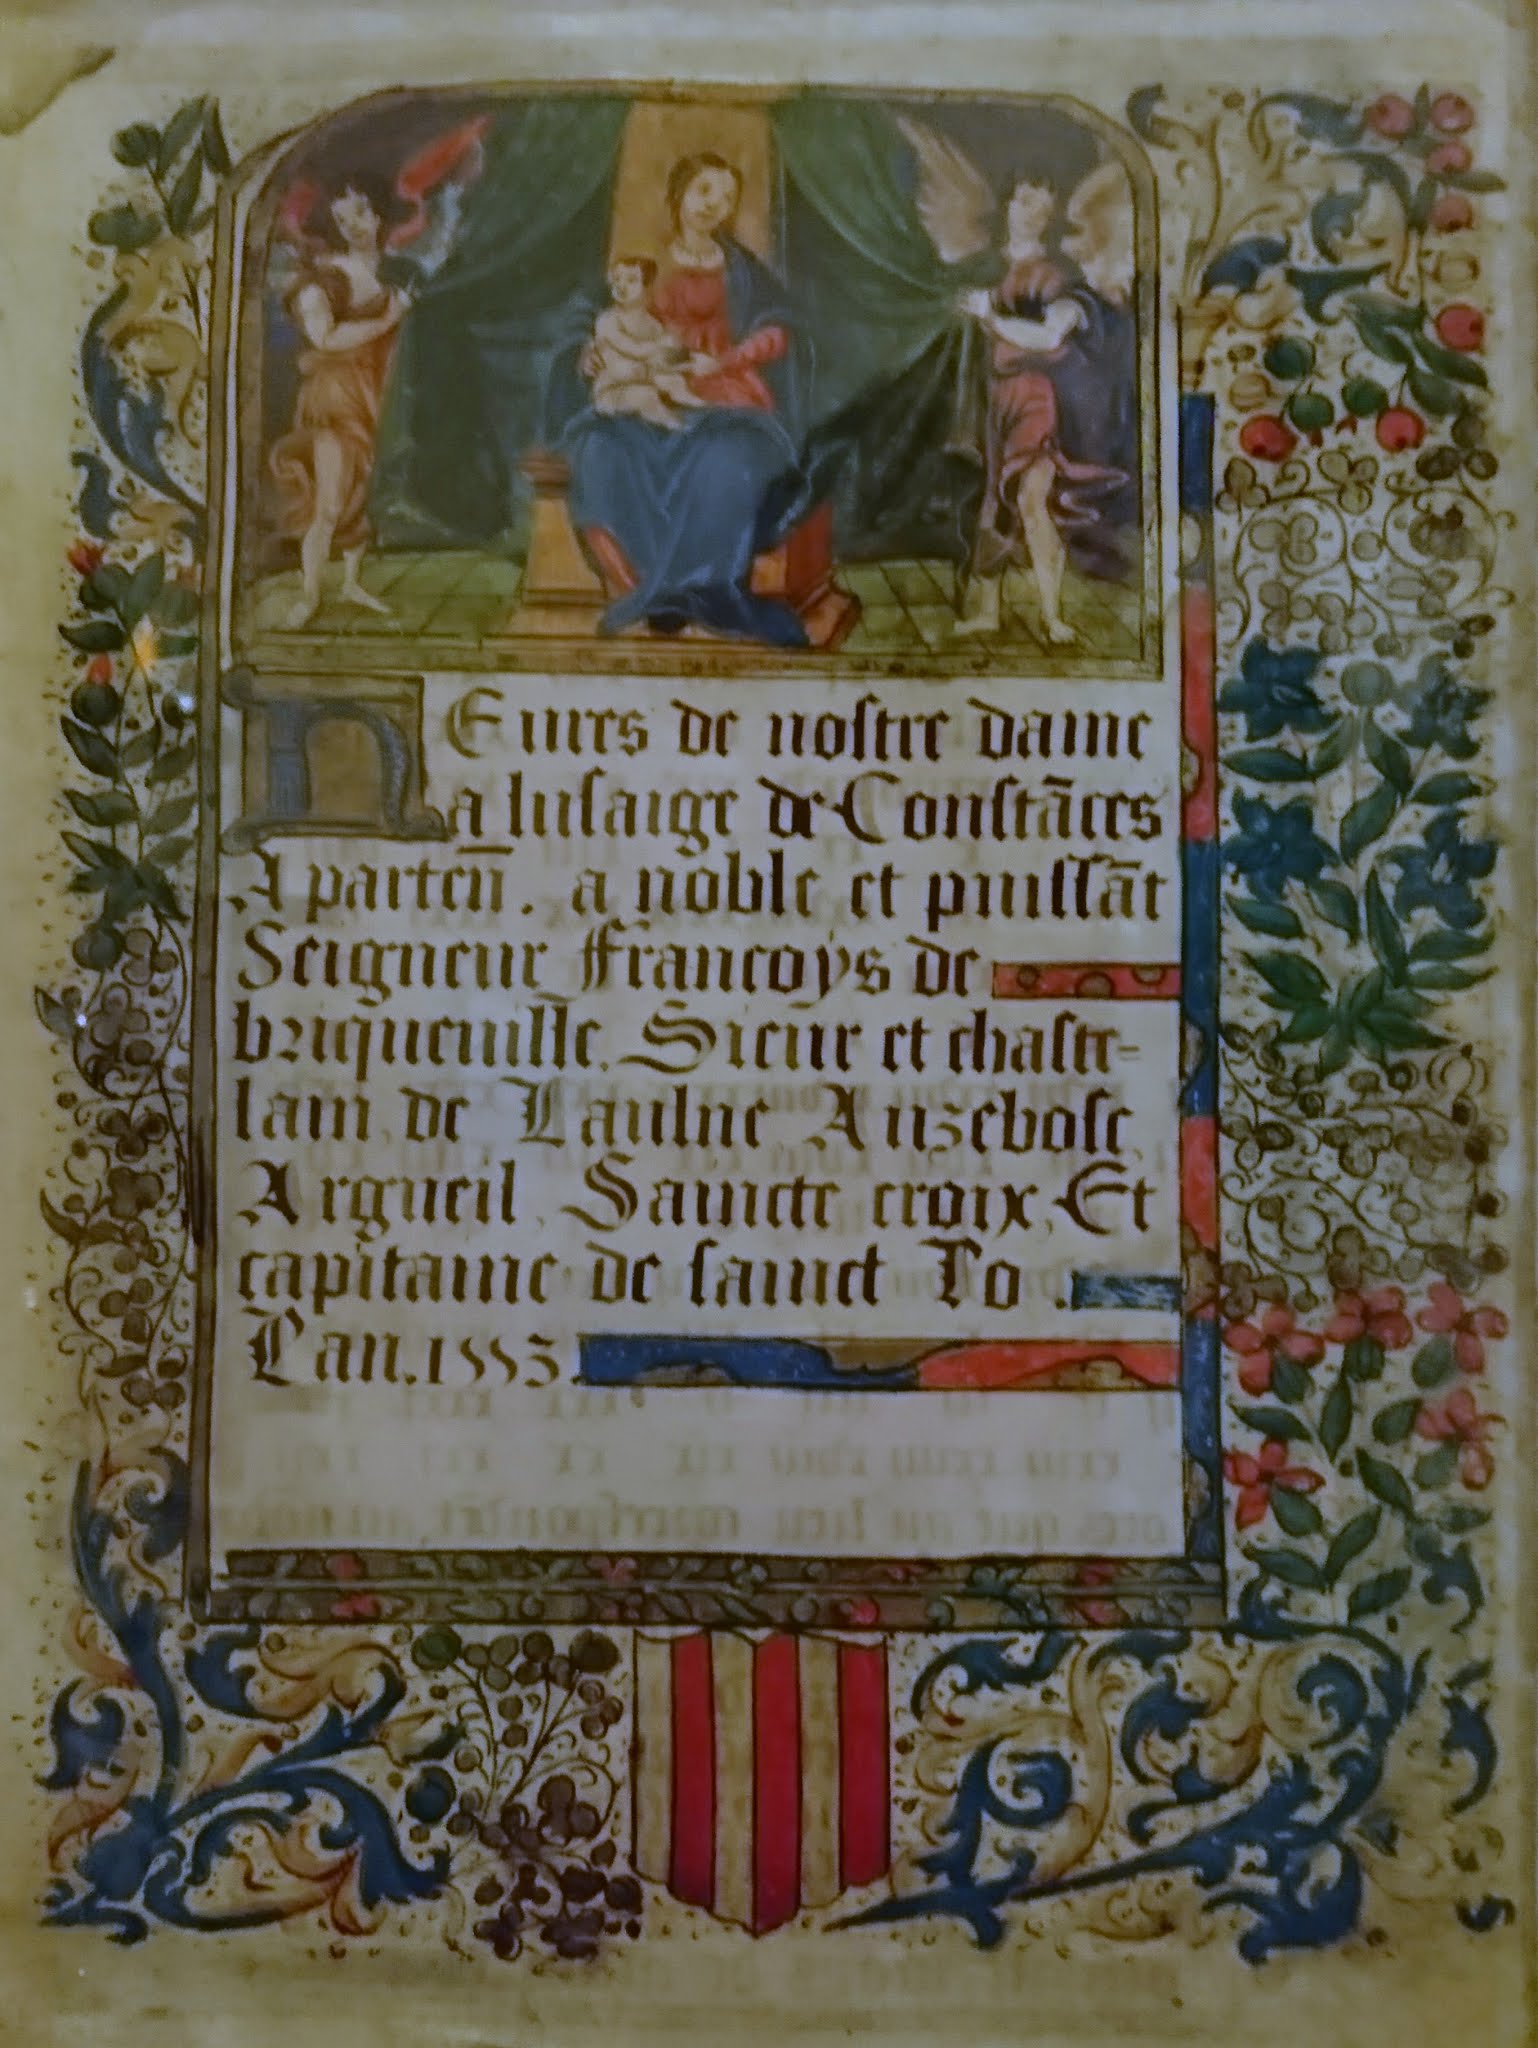 HEures de nostre dame
a lusaige de Constāces
Aparteñ. a noble et puissāt
Seigneur Francoys de
briqueuille. Sieur et chaste-
lain, de Laulne Auzebosc,
Argueil, Saincte croix, Et
capitaine de sainct Lo.
L'an. 1553.